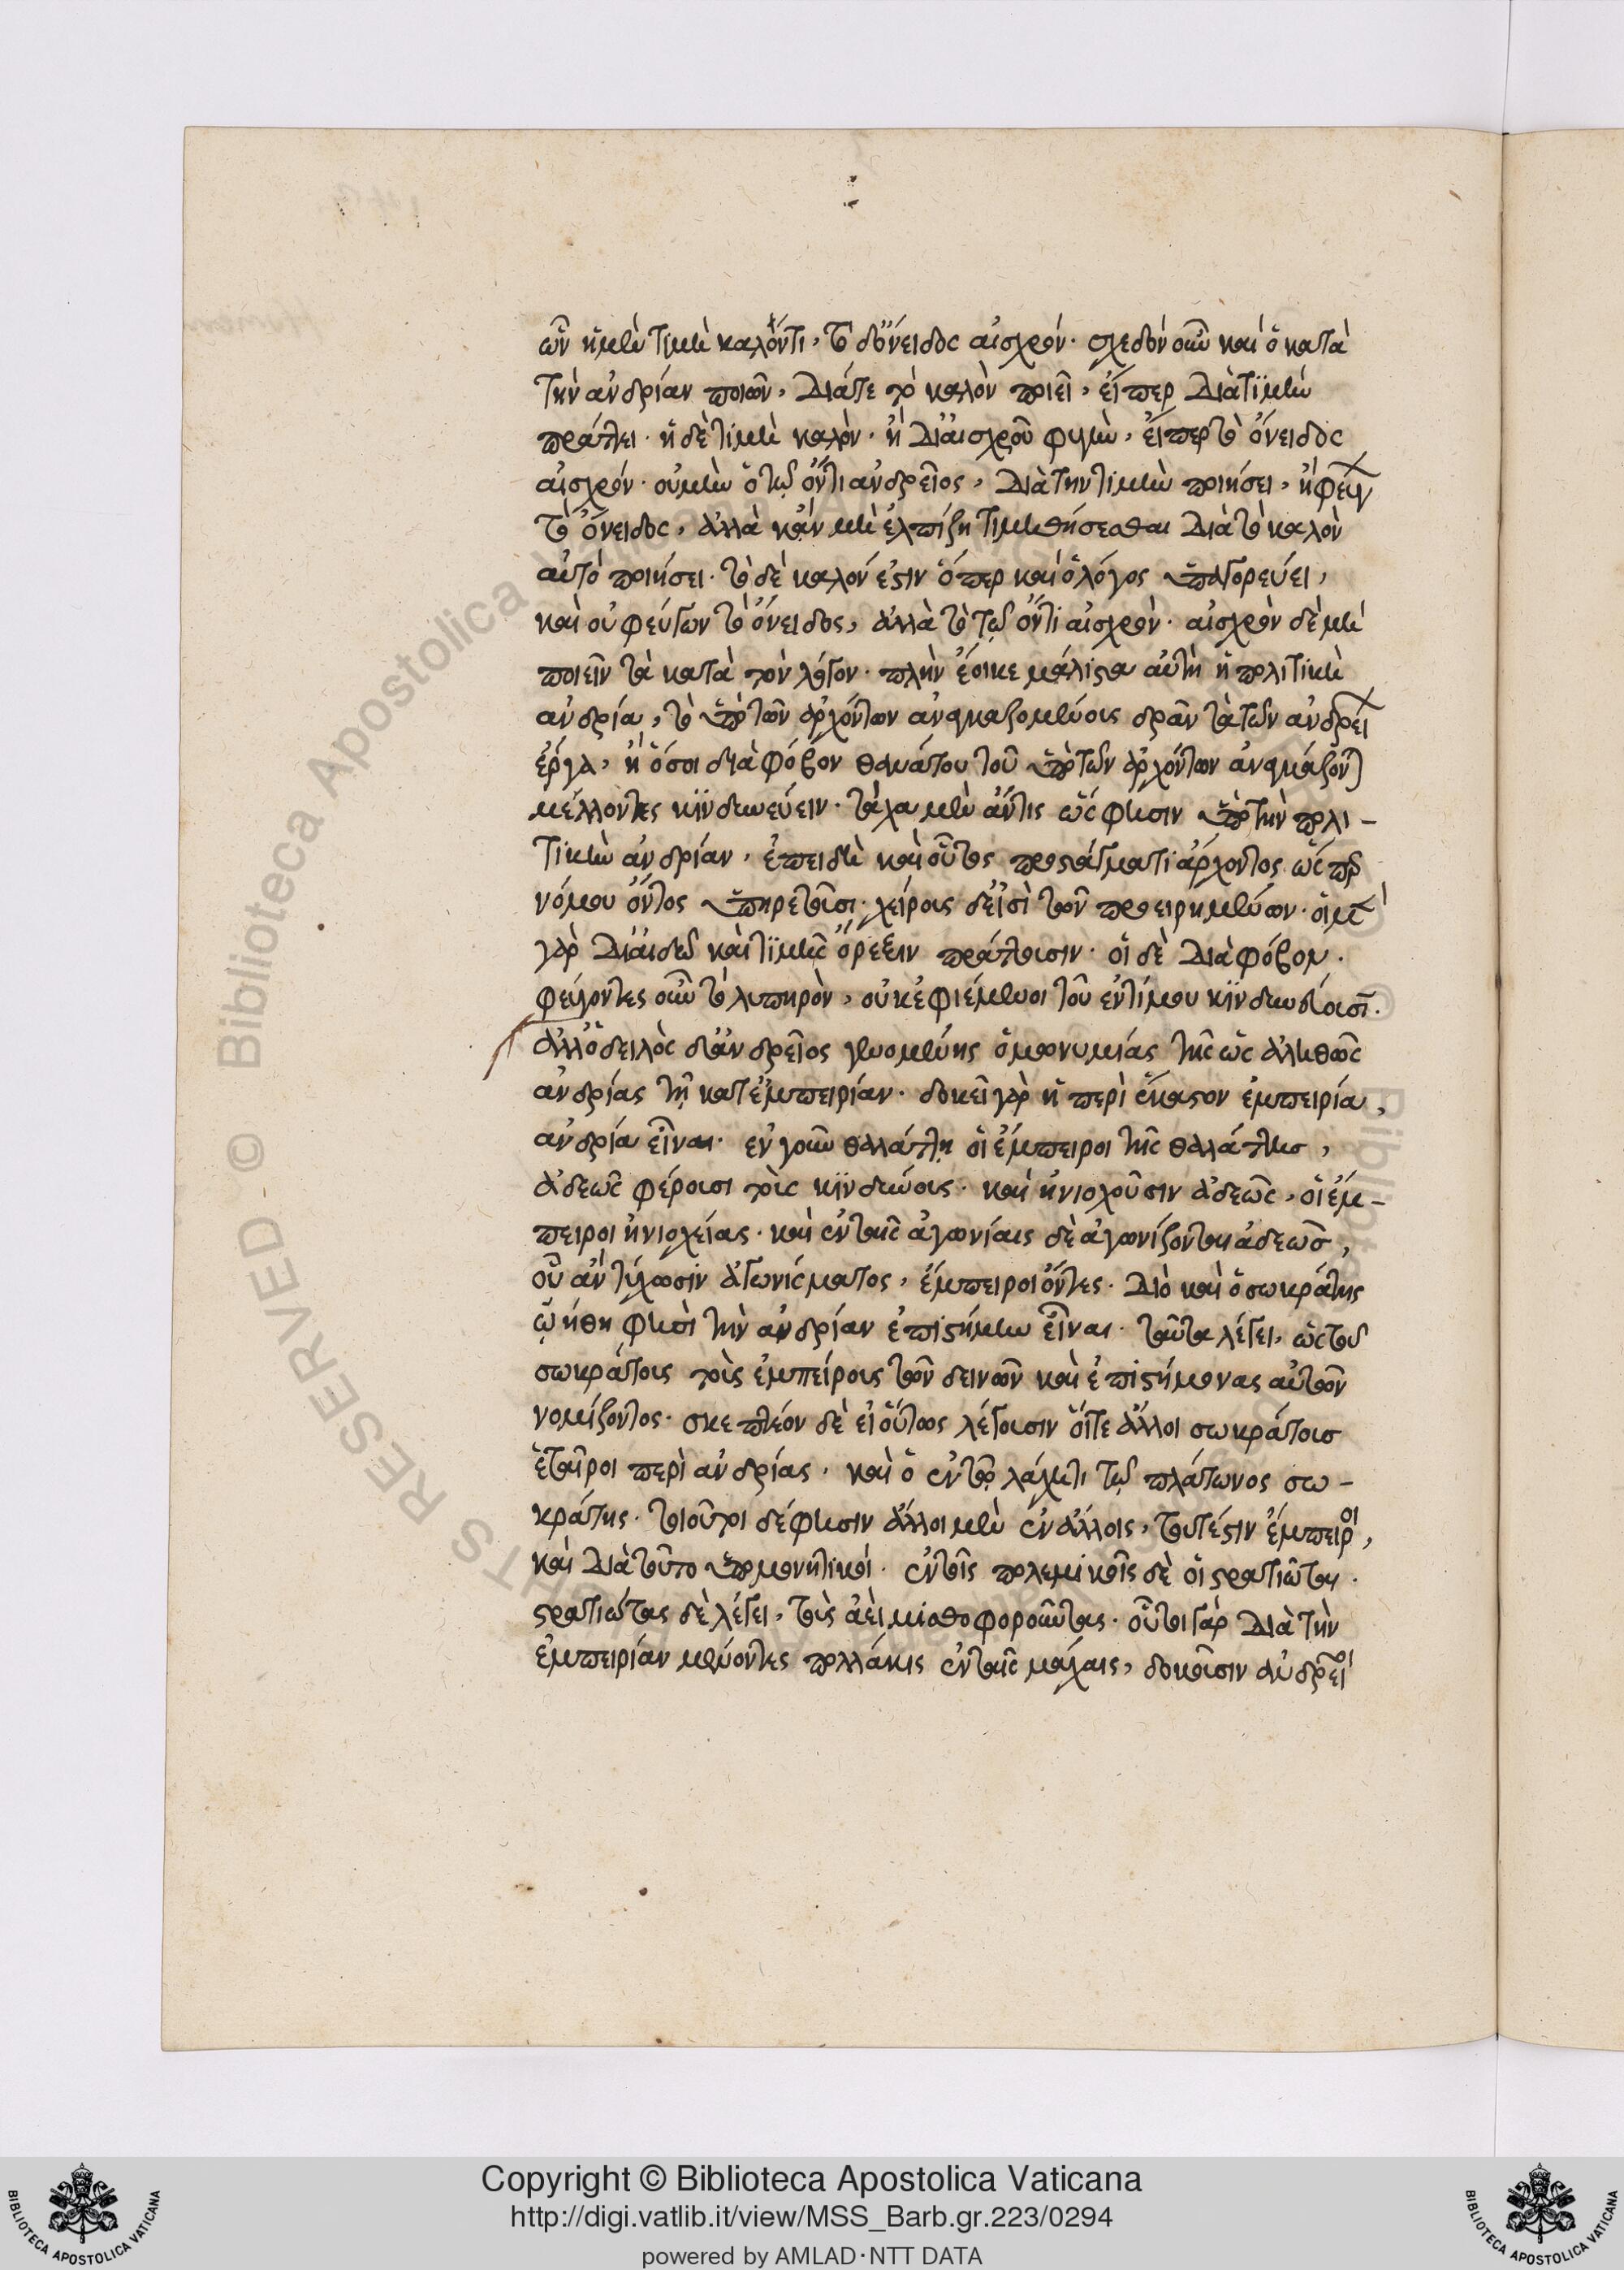 ὧν ἡ μὲν τιμὴ καλόν τι, τὸ δ' ὄνειδος αἰσχρόν. σχεδὸν οὖν καὶ ὁ κατὰ
τὴν ἀνδρίαν ποιῶν, διά τε τὸ καλὸν ποιεῖ, εἴπερ διὰ τϊμὴν
πράττει. ἡ δὲ τιμὴ καλόν. ἢ δι' αἰσχροῦ φυγὴν, εἴπερ τὸ ὄνειδος
αἰσχρόν. οὐ μὴν ὁ τῷ ὄντι ἀνδρεῖος, διὰ τὴν τιμὴν ποιήσει, ἢ φεύγων
τὸ ὄνειδος, ἀλλὰ κἂν μὴ ἐλπίζη τιμηθήσεσθαι διὰ τὸ καλὸν
αὐτὸ ποιήσει. τὸ δὲ καλόν ἐστιν ὅπερ καὶ ὁ λόγος ὑπαγορεύει,
καὶ οὐ φεύγων τὸ ὄνειδος, ἀλλὰ τὸ τῷ ὄντι αἰσχρὸν. αἰσχρὸν δὲ μὴ
ποιεῖν τὰ κατὰ τὸν λόγον. πλὴν ἔοικε μάλιστα αὐτὴ ἡ πολιτικὴ
ἀνδρία, τὸ ὑπὸ τῶν ἀρχόντων ἀναγκαζομένοις δρᾶν τὰ τῶν ἀνδρείων
ἔργα, ἢ ὅσοι διὰ φόβον θανάτου τοῦ ὑπὸ τῶν ἀρχόντων ἀναγκάζονται
μέλλοντες κϊνδυνεύειν. τάχα μὲν ἄν τις ὥς φησιν ὑπὸ τὴν πολι-
τικὴν ἀνδρίαν, ἐπειδὴ καὶ οὗτος προστάγματι ἄρχοντος ὥσπερ
νόμου ὄντος ὑπηρετοῦσι. χείρους δ' εἰσὶ τῶν προειρημένων. οἱ μὲν
γὰρ δι' αἰδῶ καὶ τϊμῆς ὄρεξιν πράττουσιν. οἱ δὲ διὰ φόβον.
φεύγοντες οὖν τὸ λυπηρὸν, οὐκ ἐφιέμενοι τοῦ ἐντίμου κϊνδυνεύουσι.
ἀλλ' ὁ δειλὸς δ' ἀνδρεῖος γενομένης ὁμωνυμίας τῆς ὡς ἀληθῶς
ἀνδρίας τῇ κατ' ἐμπειρίαν. δοκεῖ γὰρ ἡ περὶ ἕκαστον ἐμπειρία,
ἀνδρία εἶναι. ἐν γοῦν θαλάττῃ οἱ ἔμπειροι τῆς θαλάττησ,
ἀδεῶς φέρουσι τοὺς κϊνδύνους. καὶ ἡνιοχοῦσιν ἀδεῶς, οἱ ἔμ-
πειροι ἡνιοχείας. καὶ ἐν ταῖς ἀγωνίαις δὲ ἀγωνίζονται ἀδεῶσ,
οὗ ἂν τύχωσιν ἀγωνίσματος, ἔμπειροι ὄντες. διὸ καὶ ὁ σωκράτης
ᾠήθη φησὶ τὴν ἀνδρίαν ἐπιστήμην εἶναι. ταῦτα λέγει, ὡς τοῦ
σωκράτους τοὺς ἐμπείρους τῶν δεινῶν καὶ ἐπιστήμονας αὐτῶν
νομίζοντος. σκεπτέον δὲ εἰ οὕτως λέγουσιν οἵ τε ἄλλοι σωκράτουσ
ἑταῖροι περὶ ἀνδρίας, καὶ ὁ ἐν τῷ λάχητι τῷ πλάτωνος σω-
κράτης. τοιοῦτοι δέ φησιν ἄλλοι μὲν ἐν ἄλλοις, τουτέστιν ἔμπειροι,
καὶ διὰ τοῦτο ὑπομονητικοί. ἐν τοῖς πολεμικοῖς δὲ οἱ στρατιῶται.
στρατιώτας δὲ λέγει, τοὺς ἀεὶ μισθοφοροῦντας. οὗτοι γὰρ διὰ τὴν
ἐμπειρίαν μένοντες πολλάκις ἐν ταῖς μάχαις, δοκοῦσιν ἀνδρεῖοι
Copyright © Biblioteca Apostolica Vaticana
http://digi.vatlib.it/view/MSS_Barb.gr.223/0294
powered by AMLAD·NTT DATA
BIBLIOTECA APOSTOLICA VATICANA
BIBLIOTECA APOSTOLICA VATICANA